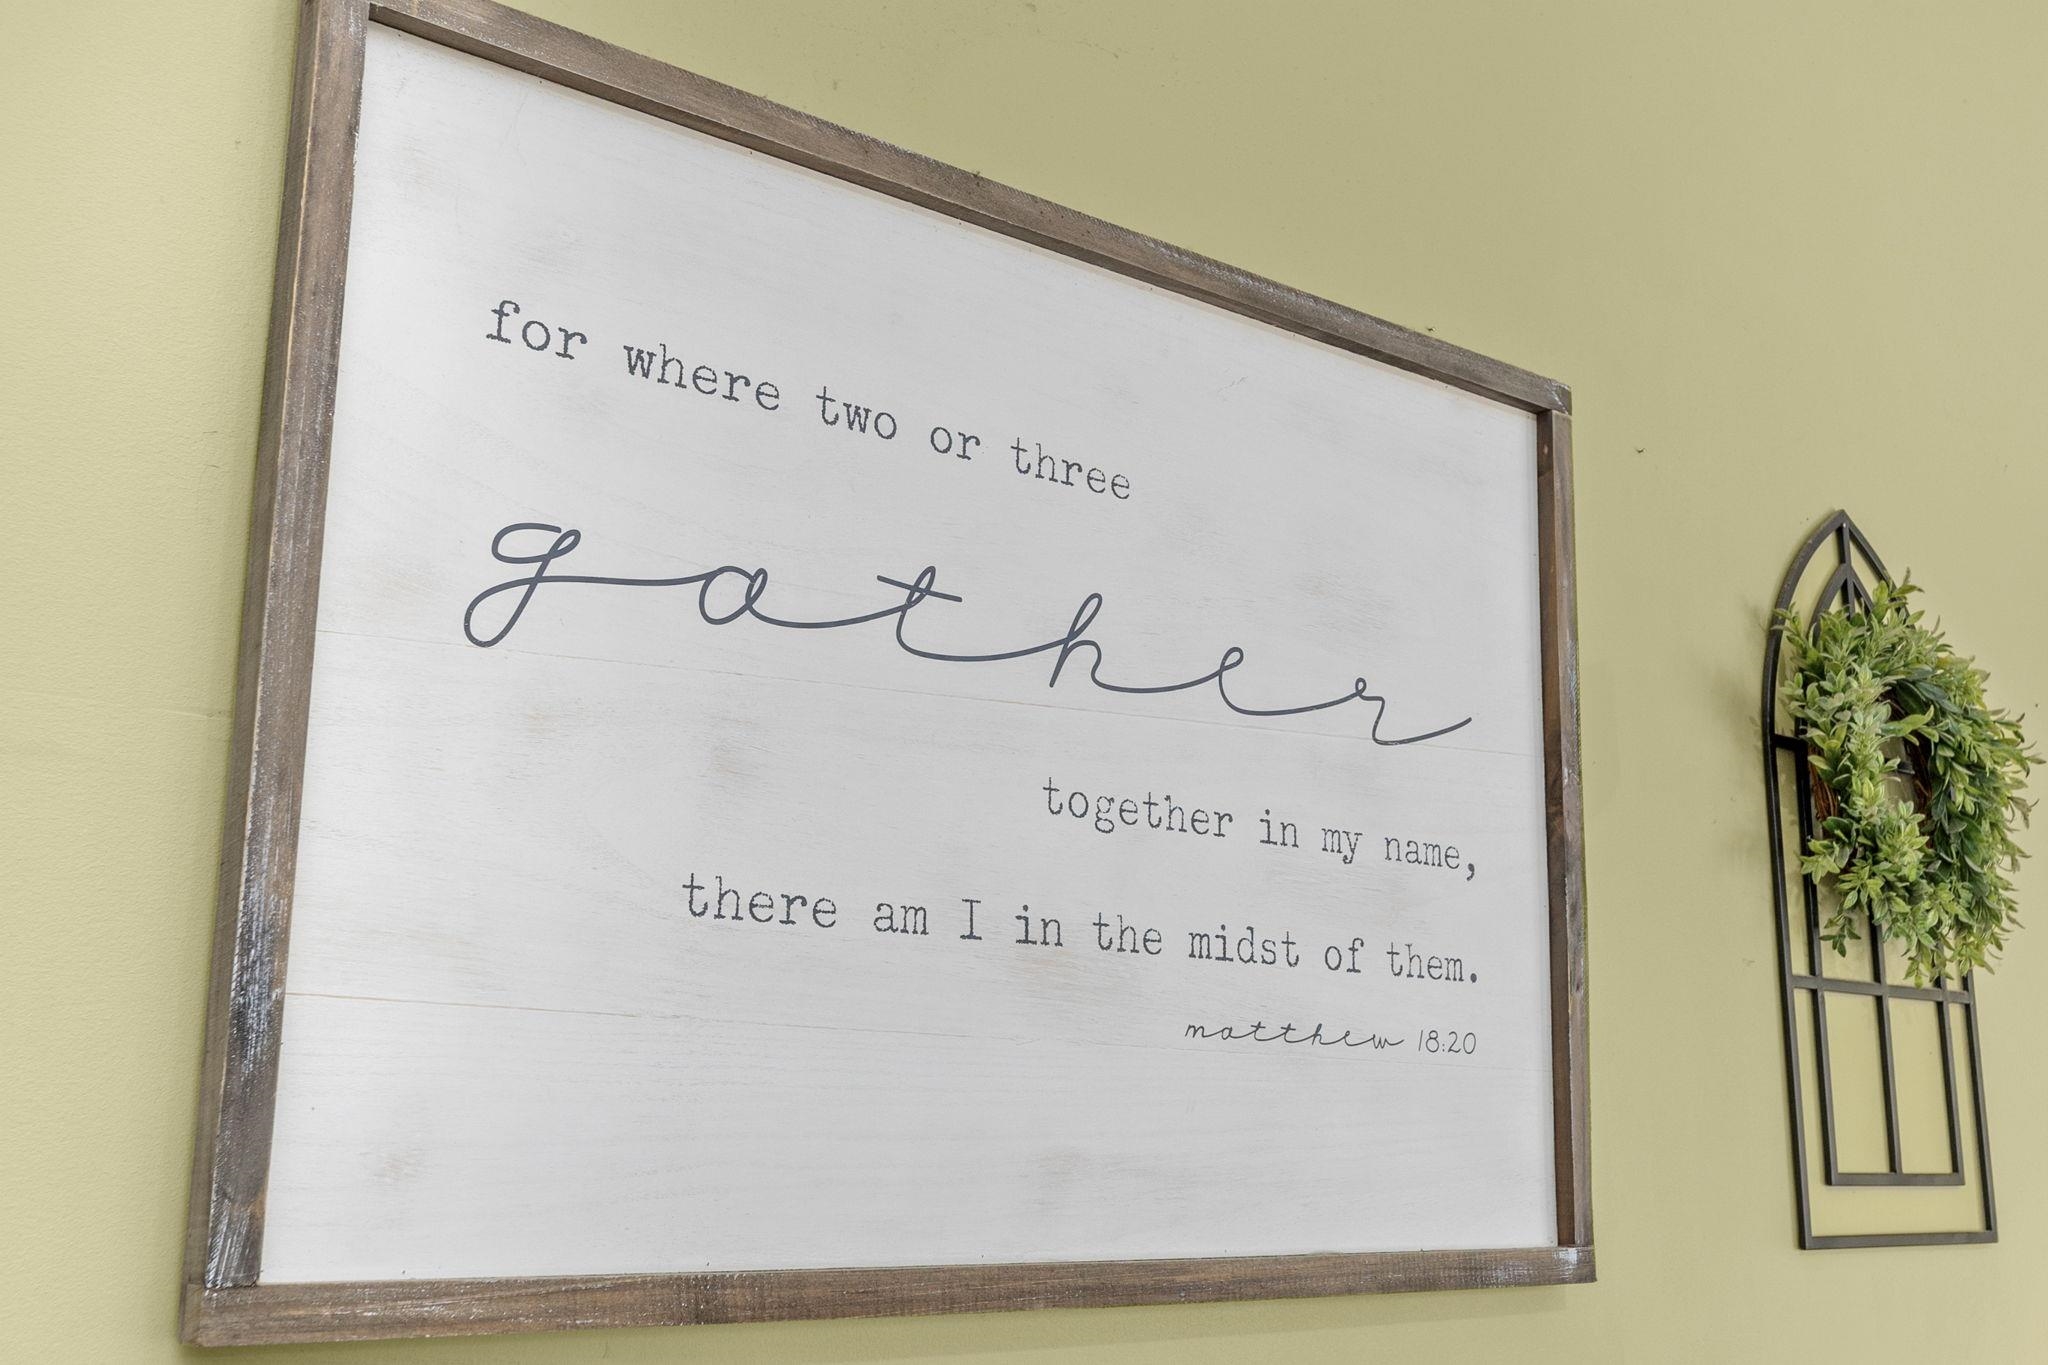 for where two or three
gather
together in my name,
there am I in the midst of them.
matthew 18:20